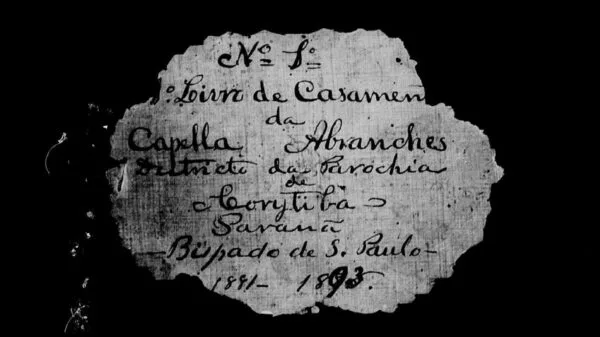 Nº 1º
1º Livro de Casamen
da
Capella Abranches
Districto da Parochia
de
Corytiba
Paraná
Bispado de S. Paulo
1881- 1893.